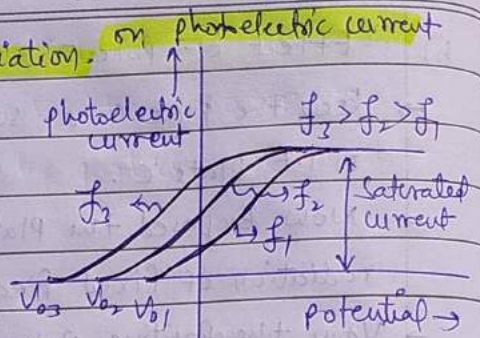 on photoelectric current
iation.
photoelectric
current
f3 > f2 > f1
f3
f2
f1
Saturated
current
V03 V02 V01
potential →